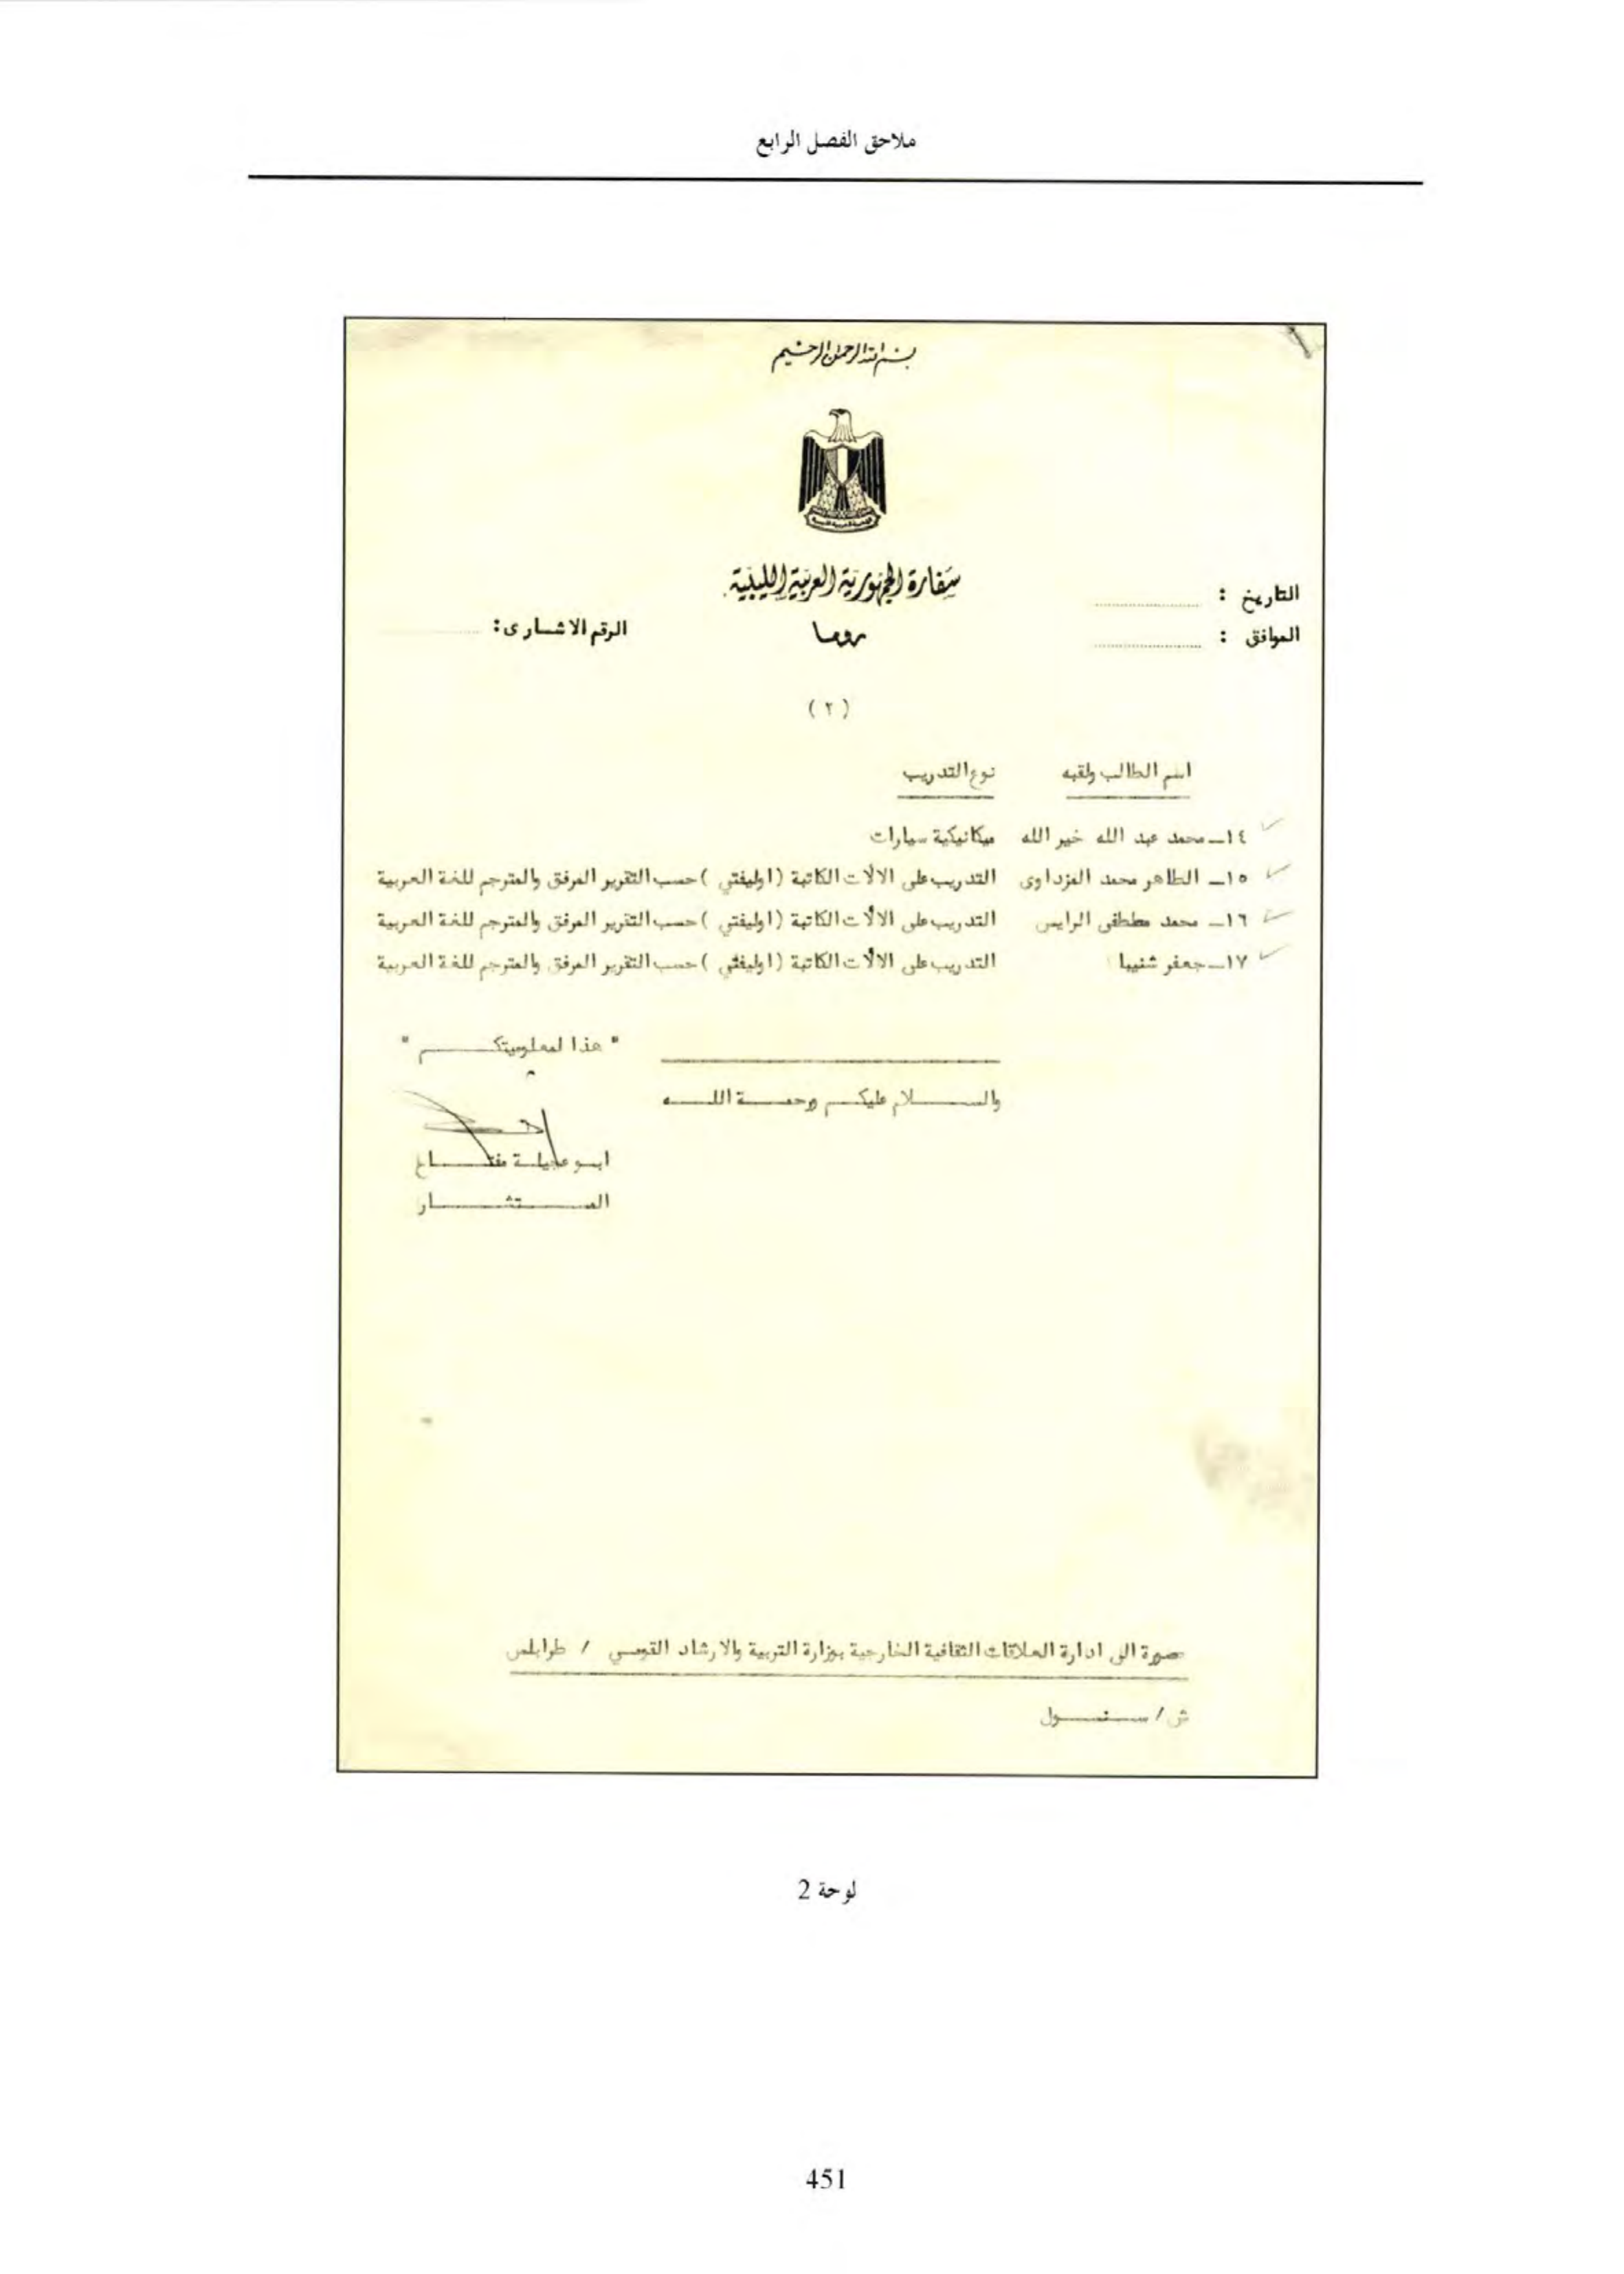 ملاحق الفصل الرابع
بسم الله الرحمن الرحيم
سفارة الجمهورية العربية الليبية
روما
التاريخ :
الموافق :
الرقم الاشارى :
( ٢ )
اسم الطالب ولقبه نوع التدريب
١٤ـ محمد عبد الله خير الله ميكانيكية سيارات
١٥ـ الطاهر محمد المزداوى التدريب على الالات الكاتبة ( اوليفتي ) حسب التقرير المرفق والمترجم للغة العربية
١٦ـ محمد مططفى الرايس التدريب على الالات الكاتبة ( اوليفتي ) حسب التقرير المرفق والمترجم للغة العربية
١٧ـ جعفر شنيبا التدريب على الالات الكاتبة ( اوليفتي ) حسب التقرير المرفق والمترجم للغة العربية
" هذا لمعلوميتكـــم "
والســـلام عليكـم ورحمـــة اللـــه
ابـو عجيلـة مفتــاح
المـــستشـــار
صورة الى ادارة العلاقات الثقافية الخارجية بوزارة التربية والارشاد القومي / طرابلس
ش / ســـول
لوحة 2
451